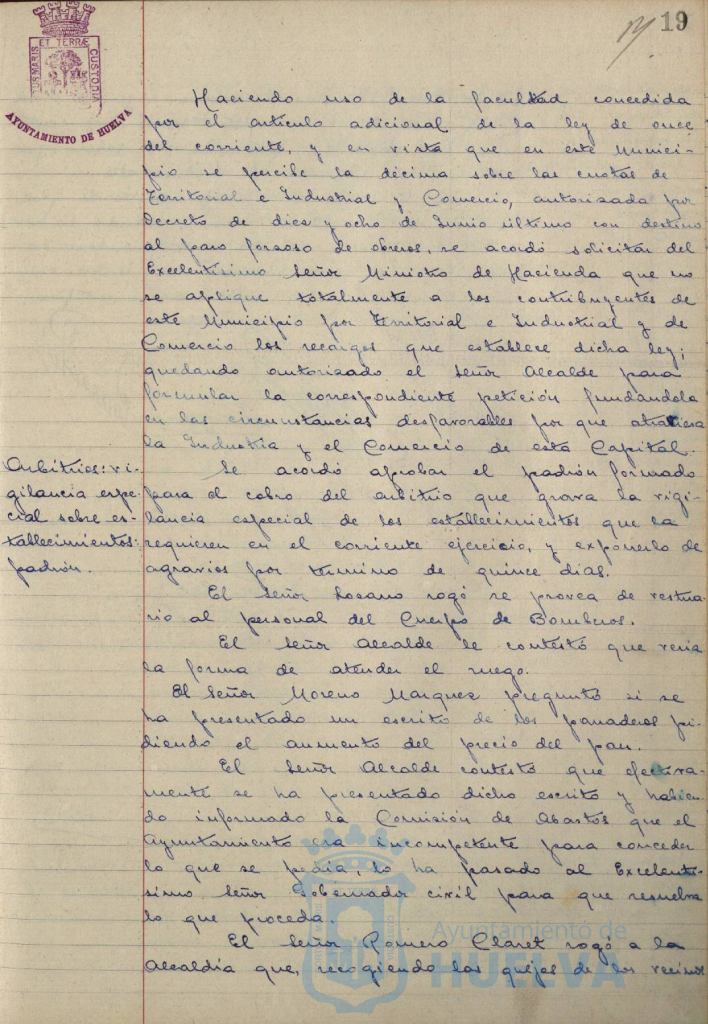 19
PORTUS MARIS ET TERRÆ CUSTODIA
AYUNTAMIENTO DE HUELVA
Haciendo uso de la facultad concedida
por el artículo adicional de la ley de once
del corriente, y en vista que en este Munici-
pio se percibe la décima sobre las cuotas de
Territorial e Industrial y Comercio, autorizada por
Decreto de diez y ocho de Junio último con destino
al paro forzoso de obreros, se acordó solicitar del
Excelentísimo Señor Ministro de Hacienda que no
se aplique totalmente a los contribuyentes de
este Municipio por Territorial e Industrial y de
Comercio los recargos que establece dicha ley;
quedando autorizado el Señor Alcalde para
formular la correspondiente petición fundandola
en las circunstancias desfavorables por que atraviesa
la Industria y el Comercio de esta Capital.
Arbitrios: vi-
gilancia espe-
cial sobre es-
tablecimientos:
padrón.
Se acordó aprobar el padrón formado
para el cobro del arbitrio que grava la vigi-
lancia especial de los establecimientos que la
requieren en el corriente ejercicio, y exponerlo de
agravios por término de quince días.
El Señor Lozano rogó se provea de vestua-
rio al personal del Cuerpo de Bomberos.
El Señor Alcalde le contestó que vería
la forma de atender el ruego.
El Señor Moreno Marquez preguntó si se
ha presentado un escrito de los panaderos pi-
diendo el aumento del precio del pan.
El Señor Alcalde contestó que efectiva-
mente se ha presentado dicho escrito y habien-
do informado la Comisión de Abastos que el
Ayuntamiento era incompetente para conceder
lo que se pedía, lo ha pasado al Excelentí-
simo Señor Gobernador civil para que resuelva
lo que proceda.
El Señor Romero Claret rogó a la
Alcaldía que, recogiendo las quejas de los vecinos
Ayuntamiento de
HUELVA